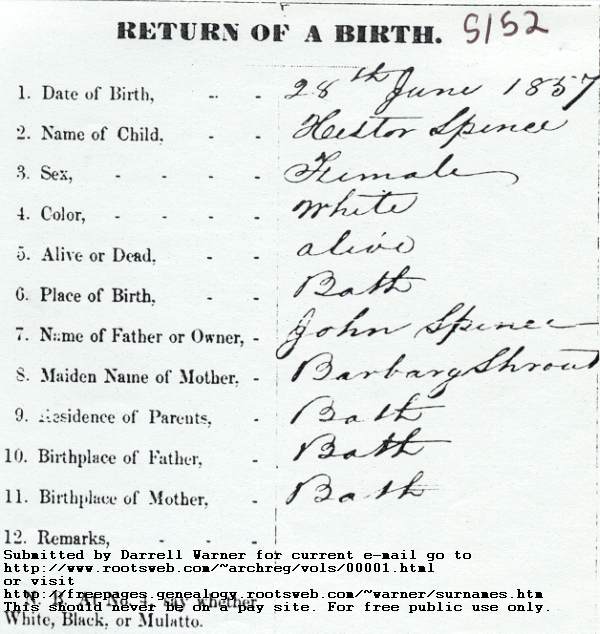 RETURN OF A BIRTH. 5152
1. Date of Birth, - - 28th June 1857
2. Name of Child, - - Hestor Spence
3. Sex, - - - - Female
4. Color, - - - - White
5. Alive or Dead, - - alive
6. Place of Birth, - - Bath
7. Name of Father or Owner, - John Spence
8. Maiden Name of Mother, - Barbary Shrout
9. Residence of Parents, - Bath
10. Birthplace of Father, - Bath
11. Birthplace of Mother, - Bath
12. Remarks, - - -
Submitted by Darrell Warner for current e-mail go to
http://www.rootsweb.com/~archreg/vols/00001.html
or visit
http://freepages.genealogy.rootsweb.com/~warner/surnames.htm
N. B. At No. 4, say whether
This should never be on a pay site. For free public use only.
White, Black, or Mulatto.